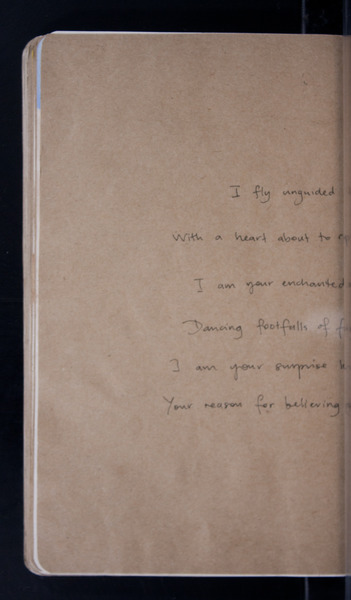 I fly unguided
With a heart about to
I am your enchanted
Dancing footfalls of
I am your surprise
Your reason for believing